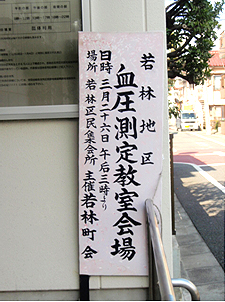 若林地区
血圧測定教室会場
日時 三月二十六日 午後三時より
場所 若林区民集会所 主催 若林町会